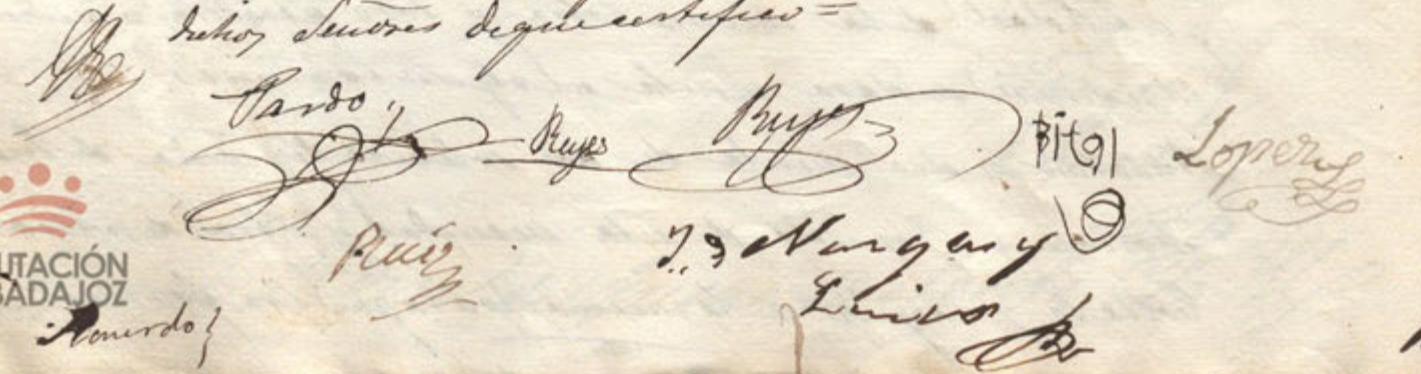 dichos Señores de que certifico=
Pardo
Reyes
Reyes
Bital
Lopez
Ruiz
Vargas y
UTACIÓN
BADAJOZ
Acuerdo